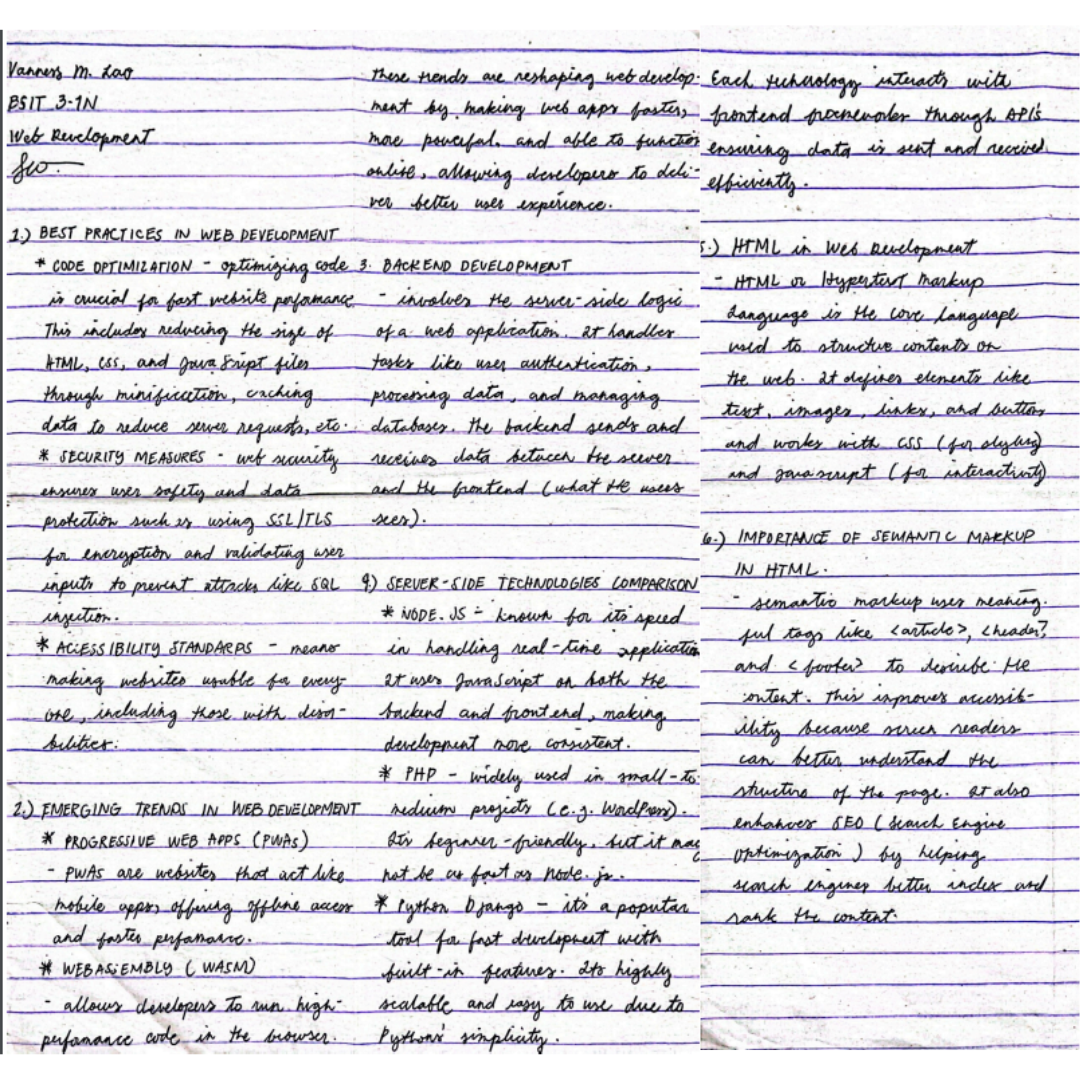 Vanness M. Lao
BSIT 3-1N
Web Development
1.) BEST PRACTICES IN WEB DEVELOPMENT
* CODE OPTIMIZATION - optimizing code
is crucial for fast website perfomance.
This includes reducing the size of
HTML, CSS, and JavaScript files
through minification, caching
data to reduce server requests, etc.
* SECURITY MEASURES - web security
ensures user safety and data
protection such as using SSL/TLS
for encryption and validating user
inputs to prevent attacks like SQL
injection.
* ACCESSIBILITY STANDARDS - means
making websites usable for every-
one, including those with disa-
bilities.
2.) EMERGING TRENDS IN WEB DEVELOPMENT
* PROGRESSIVE WEB APPS (PWAs)
- PWAs are websites that act like
mobile apps, offering offline access
and faster perfomance.
* WEBASSEMBLY (WASM)
- allows developers to run high-
perfomance code in the browser.
these trends are reshaping web develop-
ment by making web apps faster,
more powerful, and able to function
online, allowing developers to deli-
ver better user experience.
3. BACKEND DEVELOPMENT
- involves the server-side logic
of a web application. It handles
tasks like user authentication,
processing data, and managing
databases. the backend sends and
receives data between the server
and the frontend (what the users
sees).
4) SERVER-SIDE TECHNOLOGIES COMPARISON
* NODE.JS - known for its speed
in handling real-time application
It uses JavaScript on both the
backend and frontend, making
development more consistent.
* PHP - widely used in small-to-
medium projects (e.g. WordPress).
Its beginner-friendly, but it may
not be as fast as Node.js.
* Python Django - it's a popular
tool for fast development with
built-in features. Its highly
scalable and easy to use due to
Python's simplicity.
Each technology interacts with
frontend frameworks through API's
ensuring data is sent and received
efficiently.
5.) HTML in Web Development
- HTML or Hypertext Markup
Language is the core language
used to structure contents on
the web. It defines elements like
text, images, links, and buttons
and works with CSS (for styling)
and javascript (for interactivity)
6.) IMPORTANCE OF SEMANTIC MARKUP
IN HTML.
- semantic markup uses meaning-
ful tags like <article>, <header>,
and <footer> to describe the
content. This improves accessib-
ility because screen readers
can better understand the
structure of the page. It also
enhances SEO (Search Engine
Optimization) by helping
search engines better index and
rank the content.